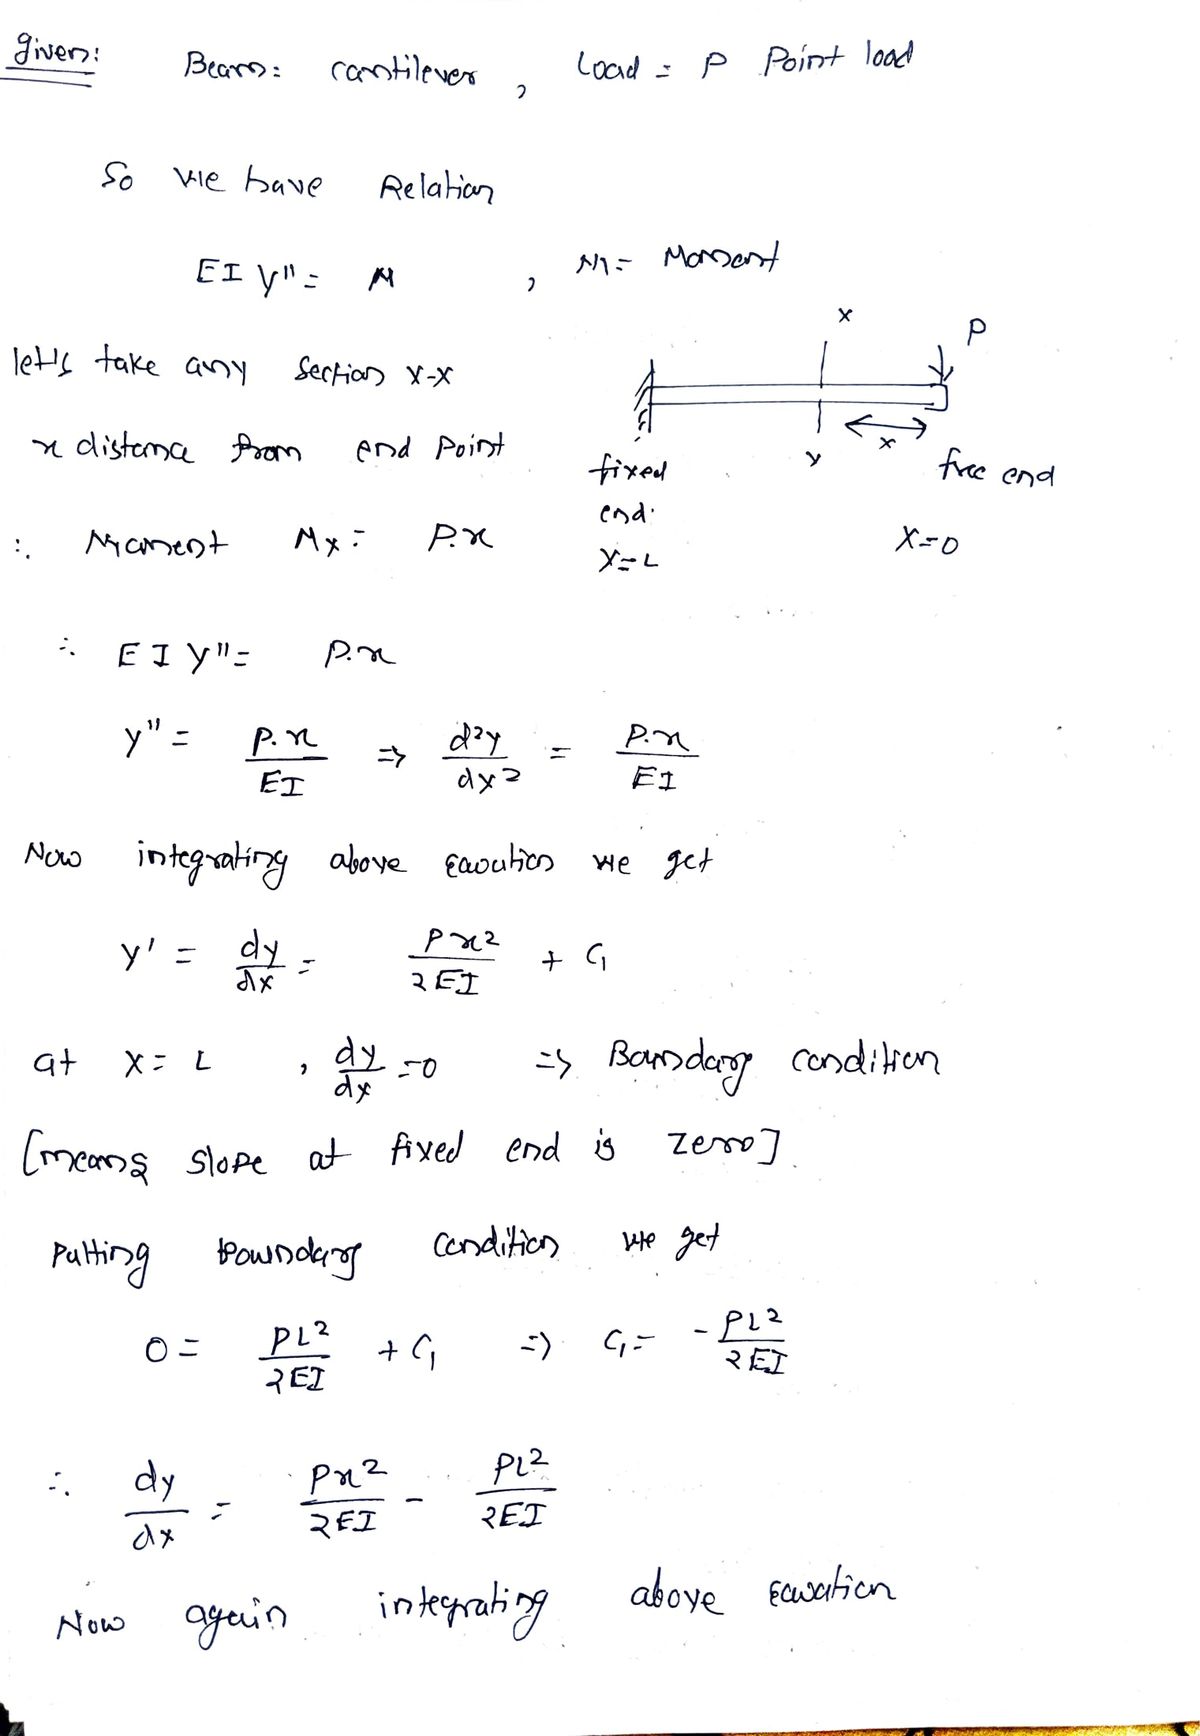 Given:   Beam: cantilever , Load = P Point load
So we have Relation
EI y" = M , M = Moment
let's take any section x-x
x distance from end point
∴ Moment Mx = P.x
x
P
x
y
fixed end.
x=L
free end
x=0
∴ EI y" = P.x
y" = P.x/EI ⇒ d²y/dx² = P.x/EI
Now integrating above equation we get
y' = dy/dx = Px²/2EI + C₁
at x = L , dy/dx = 0 ⇒ Boundary condition
[means slope at fixed end is zero].
Putting boundary condition we get
0 = PL²/2EI + C₁ ⇒ C₁ = - PL²/2EI
∴ dy/dx = Px²/2EI - PL²/2EI
Now again integrating above equation